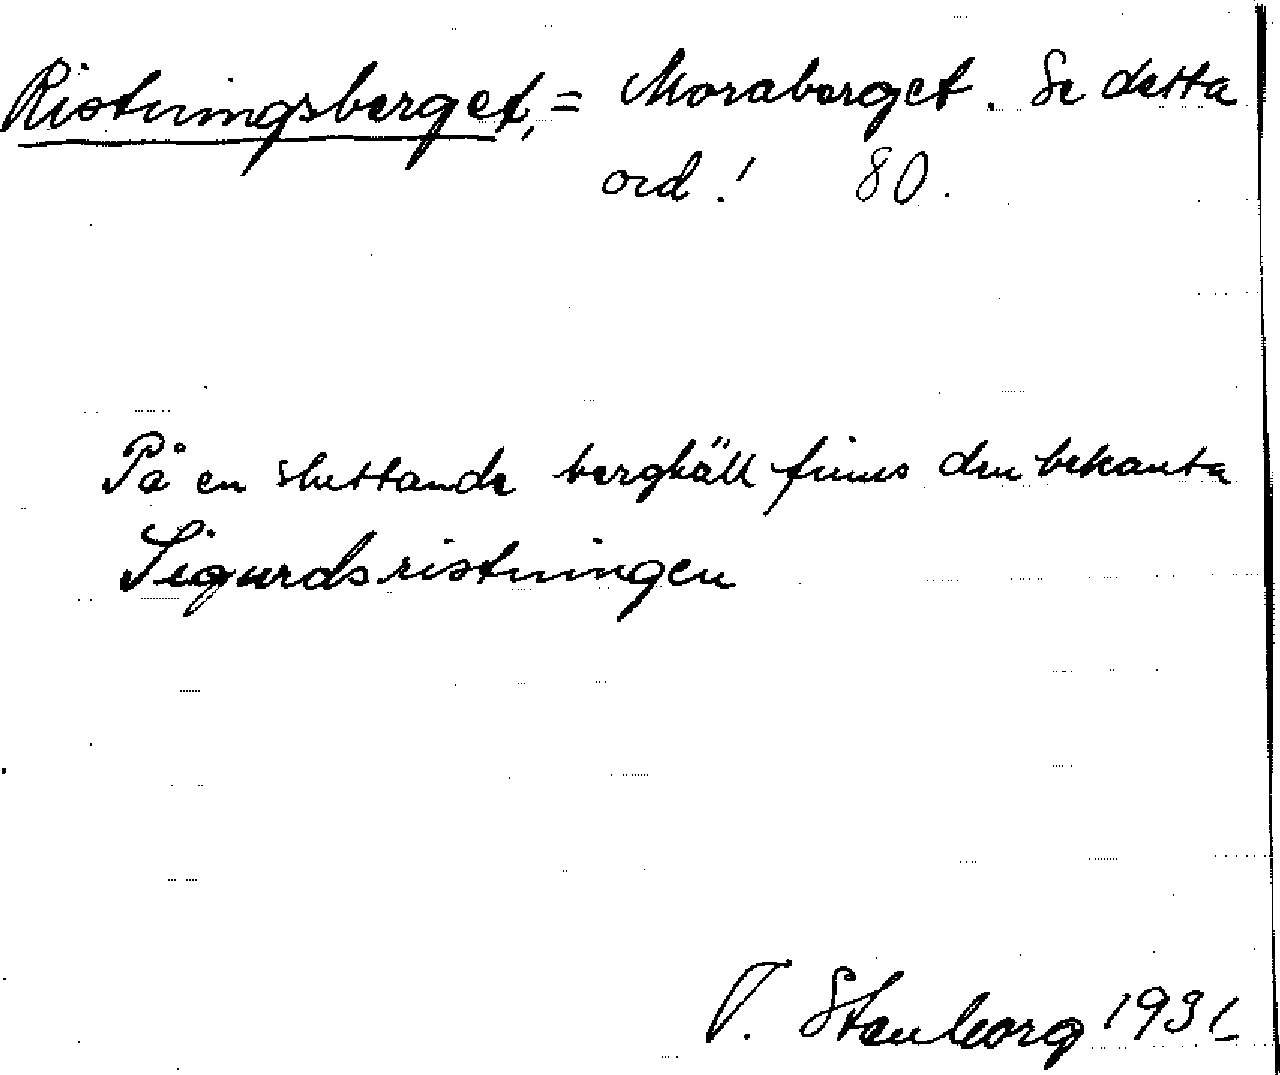 Ristningsberget, = Moraberget. Se detta
ord! 80.
På en sluttande berghäll finns den bekanta
Sigurdsristningen
T. Stenborg 1931